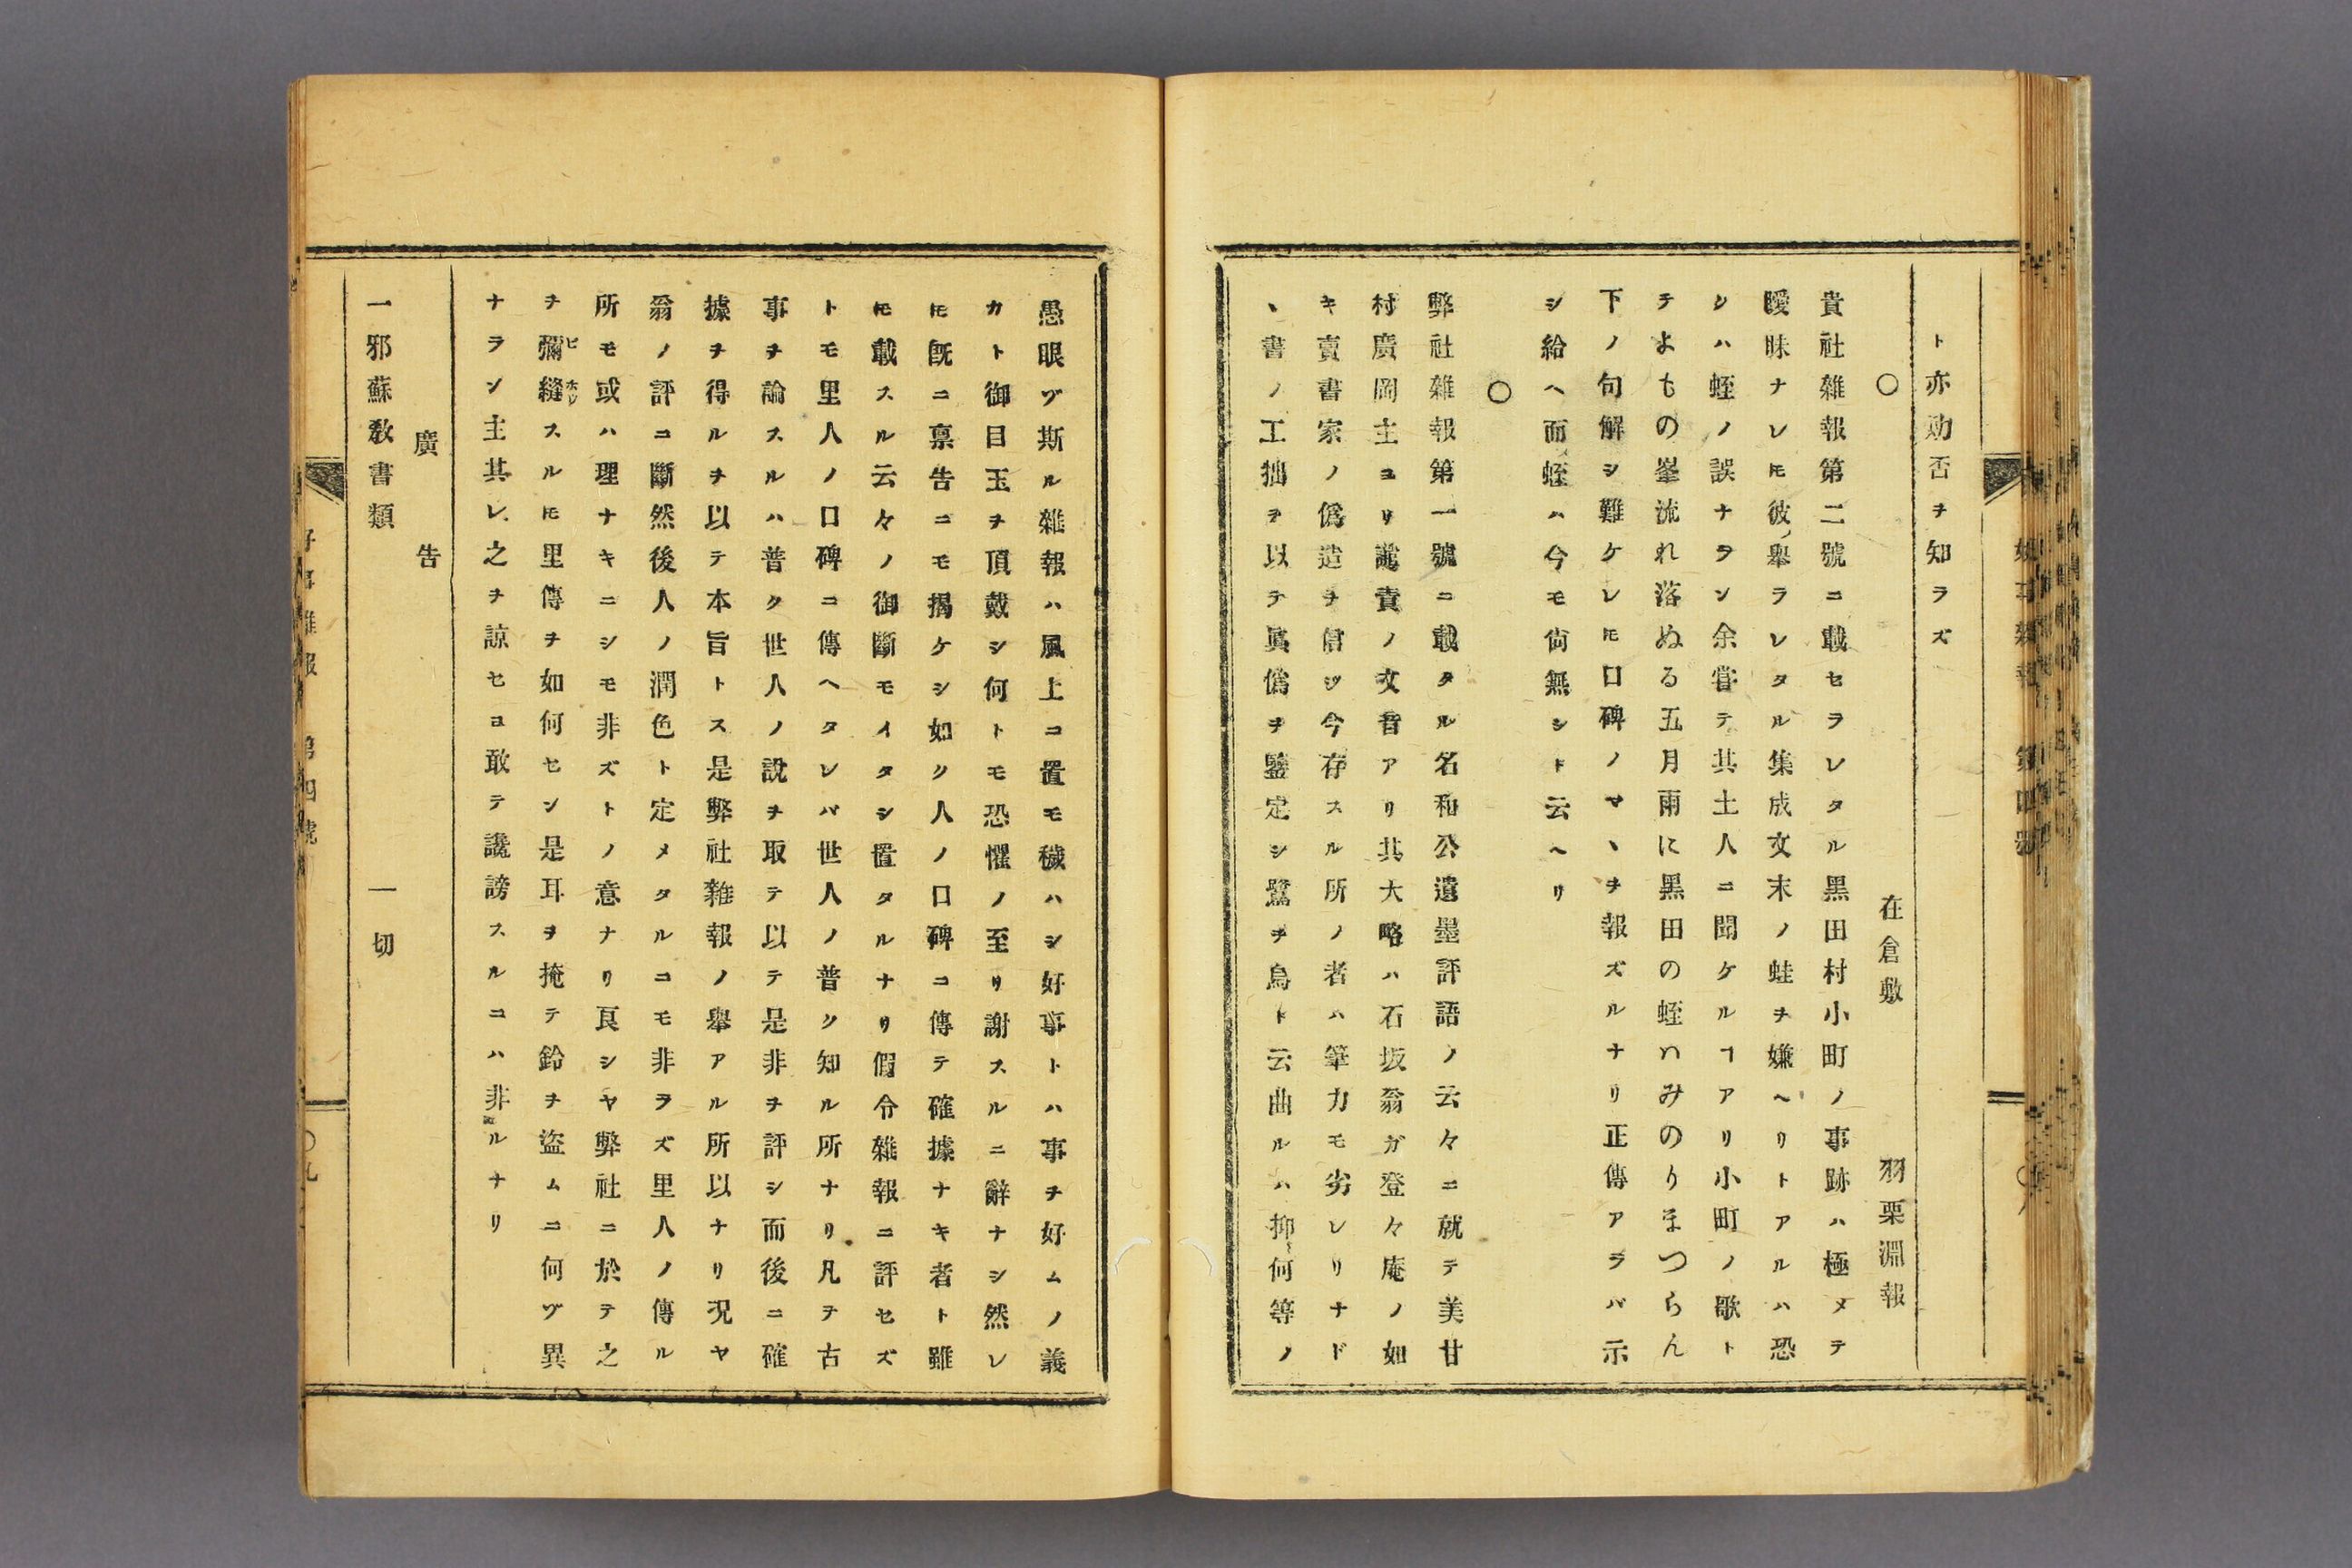 ト亦効否ヲ知ラズ
○　在倉敷　羽栗淵報
貴社雜報第二號ニ載セラレタル黒田村小町ノ事跡ハ極メテ
曖昧ナレ𪜈彼ノ擧ラレタル集成文末ノ蛙ヲ嫌ヘリトアルハ恐
シハ蛭ノ誤ナヲン余嘗テ其土人ニ聞ケルヿアリ小町ノ歌ト
テよもの峯流れ落ぬる五月雨に黒田の蛭ハみのりまつらん
下ノ句解シ難ケレ𪜈口碑ノマヽヲ報ズルナリ正傳アラバ示
シ給ヘ而蛭ハ今モ尙無シト云ヘリ
○
弊社雜報第一號ニ載タル名和公遺墨評語ノ云々ニ就テ美甘
村廣岡士ヨリ譴責ノ文音アリ其大略ハ石坂翁ガ登々庵ノ如
キ賣書家ノ僞造ヲ信ジ今存スル所ノ者ハ筆力モ劣レリナド
ヽ書ノ工拙ヲ以テ眞僞ヲ鑒定シ鷺ヲ烏ト云曲ルハ抑何等ノ
愚眼ヅ斯ル雜報ハ風上ニ置モ穢ハシ好事トハ事ヲ好ムノ義
カト御目玉ヲ頂戴シ何トモ恐懼ノ至リ謝スルニ辭ナシ然レ
𪜈既ニ稟告ニモ揭ケシ如ク人ノ口碑ニ傳テ確據ナキ者ト雖
𪜈載スル云々ノ御斷モイタシ置タルナリ假令雜報ニ評セズ
トモ里人ノ口碑ニ傳ヘタレバ世人ノ普ク知ル所ナリ凡テ古
事ヲ論スルハ普ク世人ノ說ヲ取テ以テ是非ヲ評シ而後ニ確
據ヲ得ルヲ以テ本旨トス是弊社雜報ノ擧アル所以ナリ況ヤ
翁ノ評ニ斷然後人ノ潤色ト定メタルニモ非ラズ里人ノ傳ル
所モ或ハ理ナキニシモ非ズトノ意ナリ良シヤ弊社ニ於テ之
ヲ彌縫スル𪜈里傳ヲ如何セン是耳ヲ掩テ鈴ヲ盜ムニ何ヅ異
ナラン主其レ之ヲ諒セヨ敢テ讒謗スルニハ非ルナリ
廣告
一邪蘇敎書類　一切